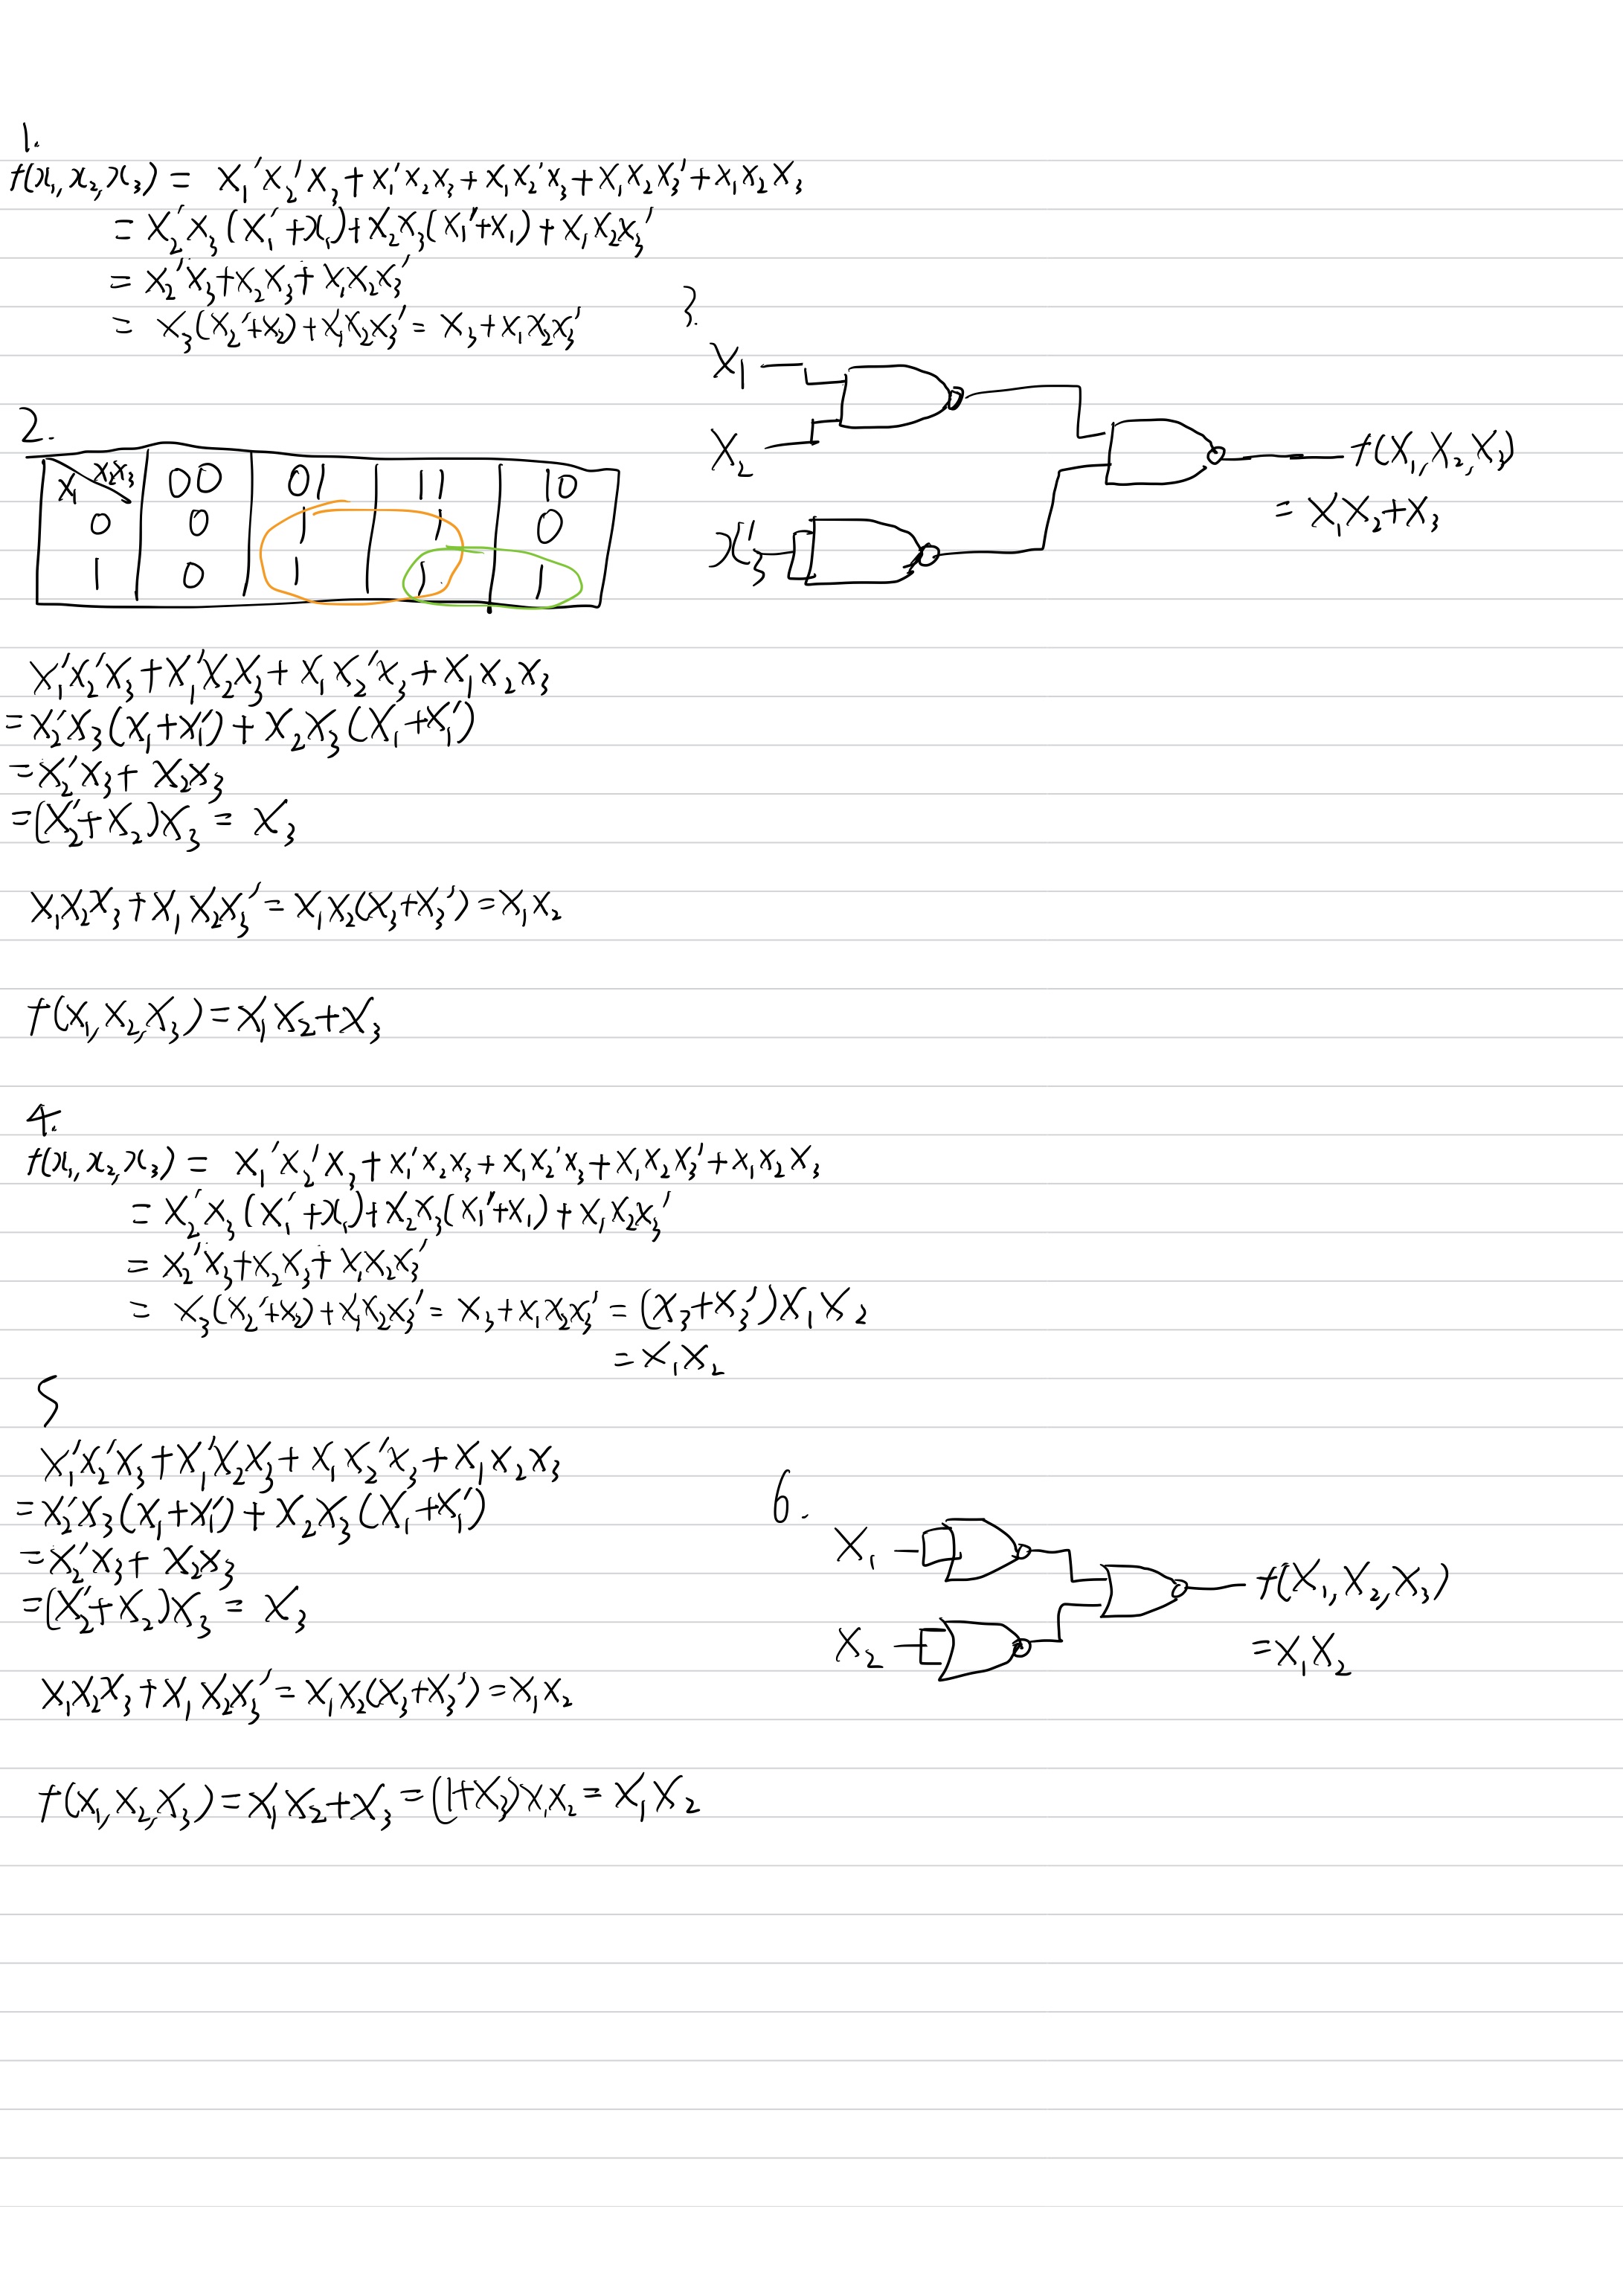 1.
f(x₁, x₂, x₃) = x₁'x₂'x₃ + x₁'x₂x₃ + x₁x₂'x₃ + x₁x₂x₃' + x₁x₂x₃
= x₂'x₃(x₁' + x₁) + x₂x₃(x₁' + x₁) + x₁x₂x₃'
= x₂'x₃ + x₂x₃ + x₁x₂x₃'
= x₃(x₂' + x₂) + x₁x₂x₃' = x₃ + x₁x₂x₃'
2.
x₁ x₂x₃ 00 01 11 10
0 0 1 1 0
1 0 1 1 1
x₁'x₂'x₃ + x₁'x₂x₃ + x₁x₂'x₃ + x₁x₂x₃
= x₂'x₃(x₁ + x₁') + x₂x₃(x₁ + x₁')
= x₂'x₃ + x₂x₃
= (x₂' + x₂)x₃ = x₃
x₁x₂x₃ + x₁x₂x₃' = x₁x₂(x₃ + x₃') = x₁x₂
f(x₁, x₂, x₃) = x₁x₂ + x₃
3.
x₁
x₂
x₃'
f(x₁, x₂, x₃)
= x₁x₂ + x₃
4.
f(x₁, x₂, x₃) = x₁'x₂'x₃ + x₁'x₂x₃ + x₁x₂'x₃ + x₁x₂x₃' + x₁x₂x₃
= x₂'x₃(x₁' + x₁) + x₂x₃(x₁' + x₁) + x₁x₂x₃'
= x₂'x₃ + x₂x₃ + x₁x₂x₃'
= x₃(x₂' + x₂) + x₁x₂x₃' = x₃ + x₁x₂x₃' = (x₃ + x₃')x₁x₂
= x₁x₂
5
x₁'x₂'x₃ + x₁'x₂x₃ + x₁x₂'x₃ + x₁x₂x₃
= x₂'x₃(x₁ + x₁') + x₂x₃(x₁ + x₁')
= x₂'x₃ + x₂x₃
= (x₂' + x₂)x₃ = x₃
x₁x₂x₃ + x₁x₂x₃' = x₁x₂(x₃ + x₃') = x₁x₂
f(x₁, x₂, x₃) = x₁x₂ + x₃ = (1 + x₃)x₁x₂ = x₁x₂
6.
x₁
x₂
f(x₁, x₂, x₃)
= x₁x₂